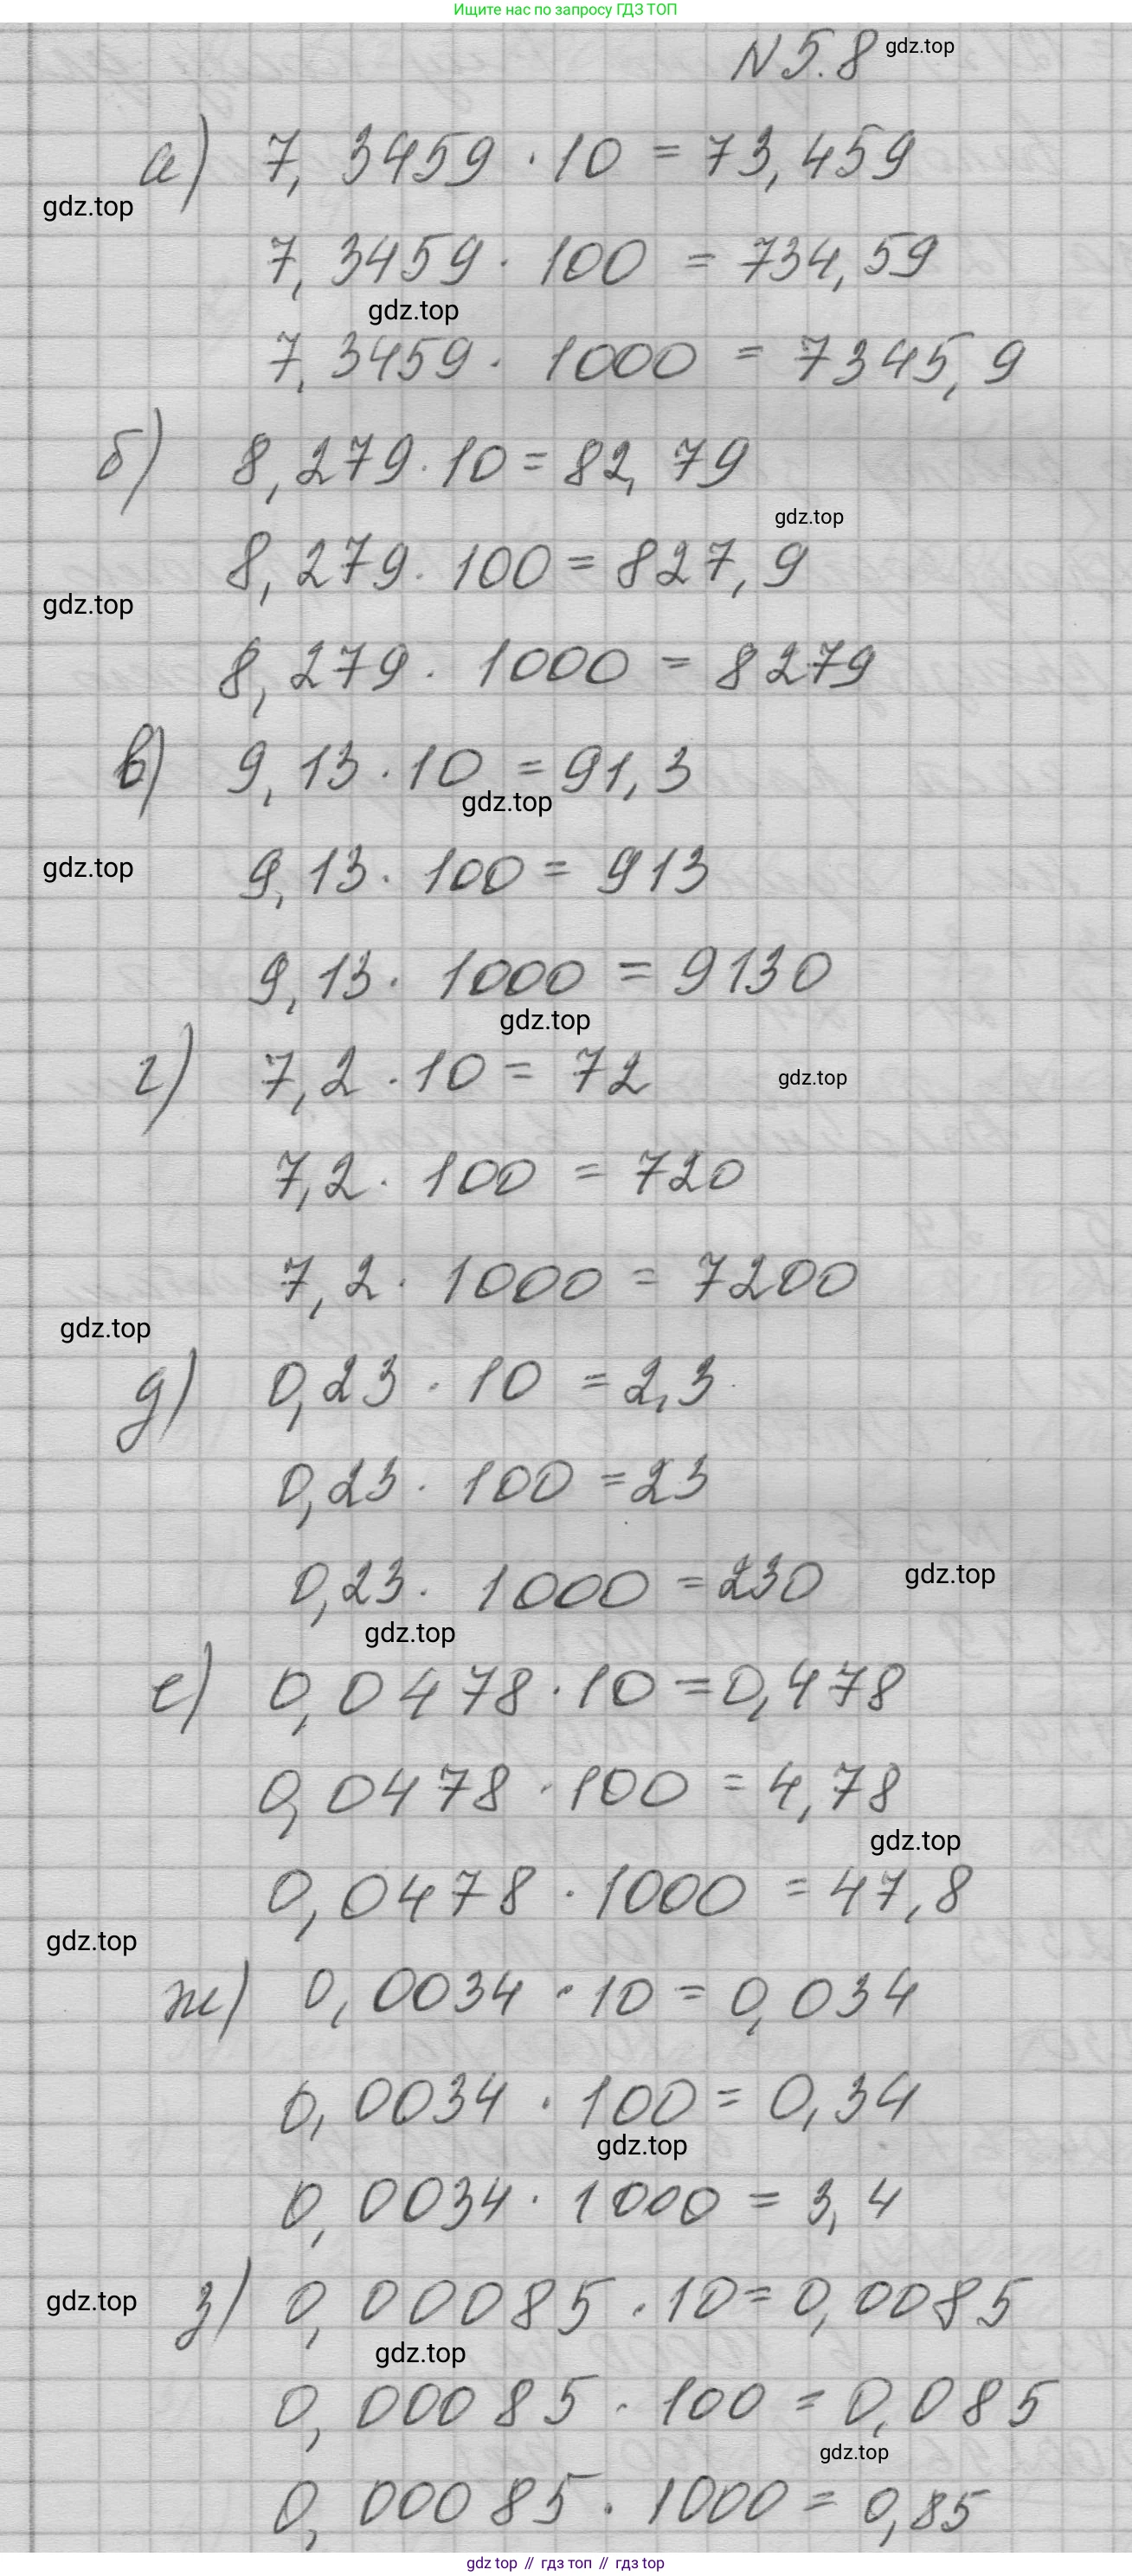 Ищите нас по запросу ГДЗ ТОП
N 5.8 gdz.top
а) 7,3459 · 10 = 73,459
gdz.top
7,3459 · 100 = 734,59
gdz.top
7,3459 · 1000 = 7345,9
б) 8,279 · 10 = 82,79
gdz.top
8,279 · 100 = 827,9
gdz.top
8,279 · 1000 = 8279
в) 9,13 · 10 = 91,3
gdz.top
gdz.top 9,13 · 100 = 913
9,13 · 1000 = 9130
gdz.top
г) 7,2 · 10 = 72 gdz.top
7,2 · 100 = 720
7,2 · 1000 = 7200
gdz.top
д) 0,23 · 10 = 2,3
0,23 · 100 = 23
0,23 · 1000 = 230 gdz.top
gdz.top
е) 0,0478 · 10 = 0,478
0,0478 · 100 = 4,78
gdz.top
0,0478 · 1000 = 47,8
gdz.top
ж) 0,0034 · 10 = 0,034
0,0034 · 100 = 0,34
gdz.top
0,0034 · 1000 = 3,4
gdz.top з) 0,00085 · 10 = 0,0085
gdz.top
0,00085 · 100 = 0,085
gdz.top
0,00085 · 1000 = 0,85
gdz top // гдз топ // гдз top